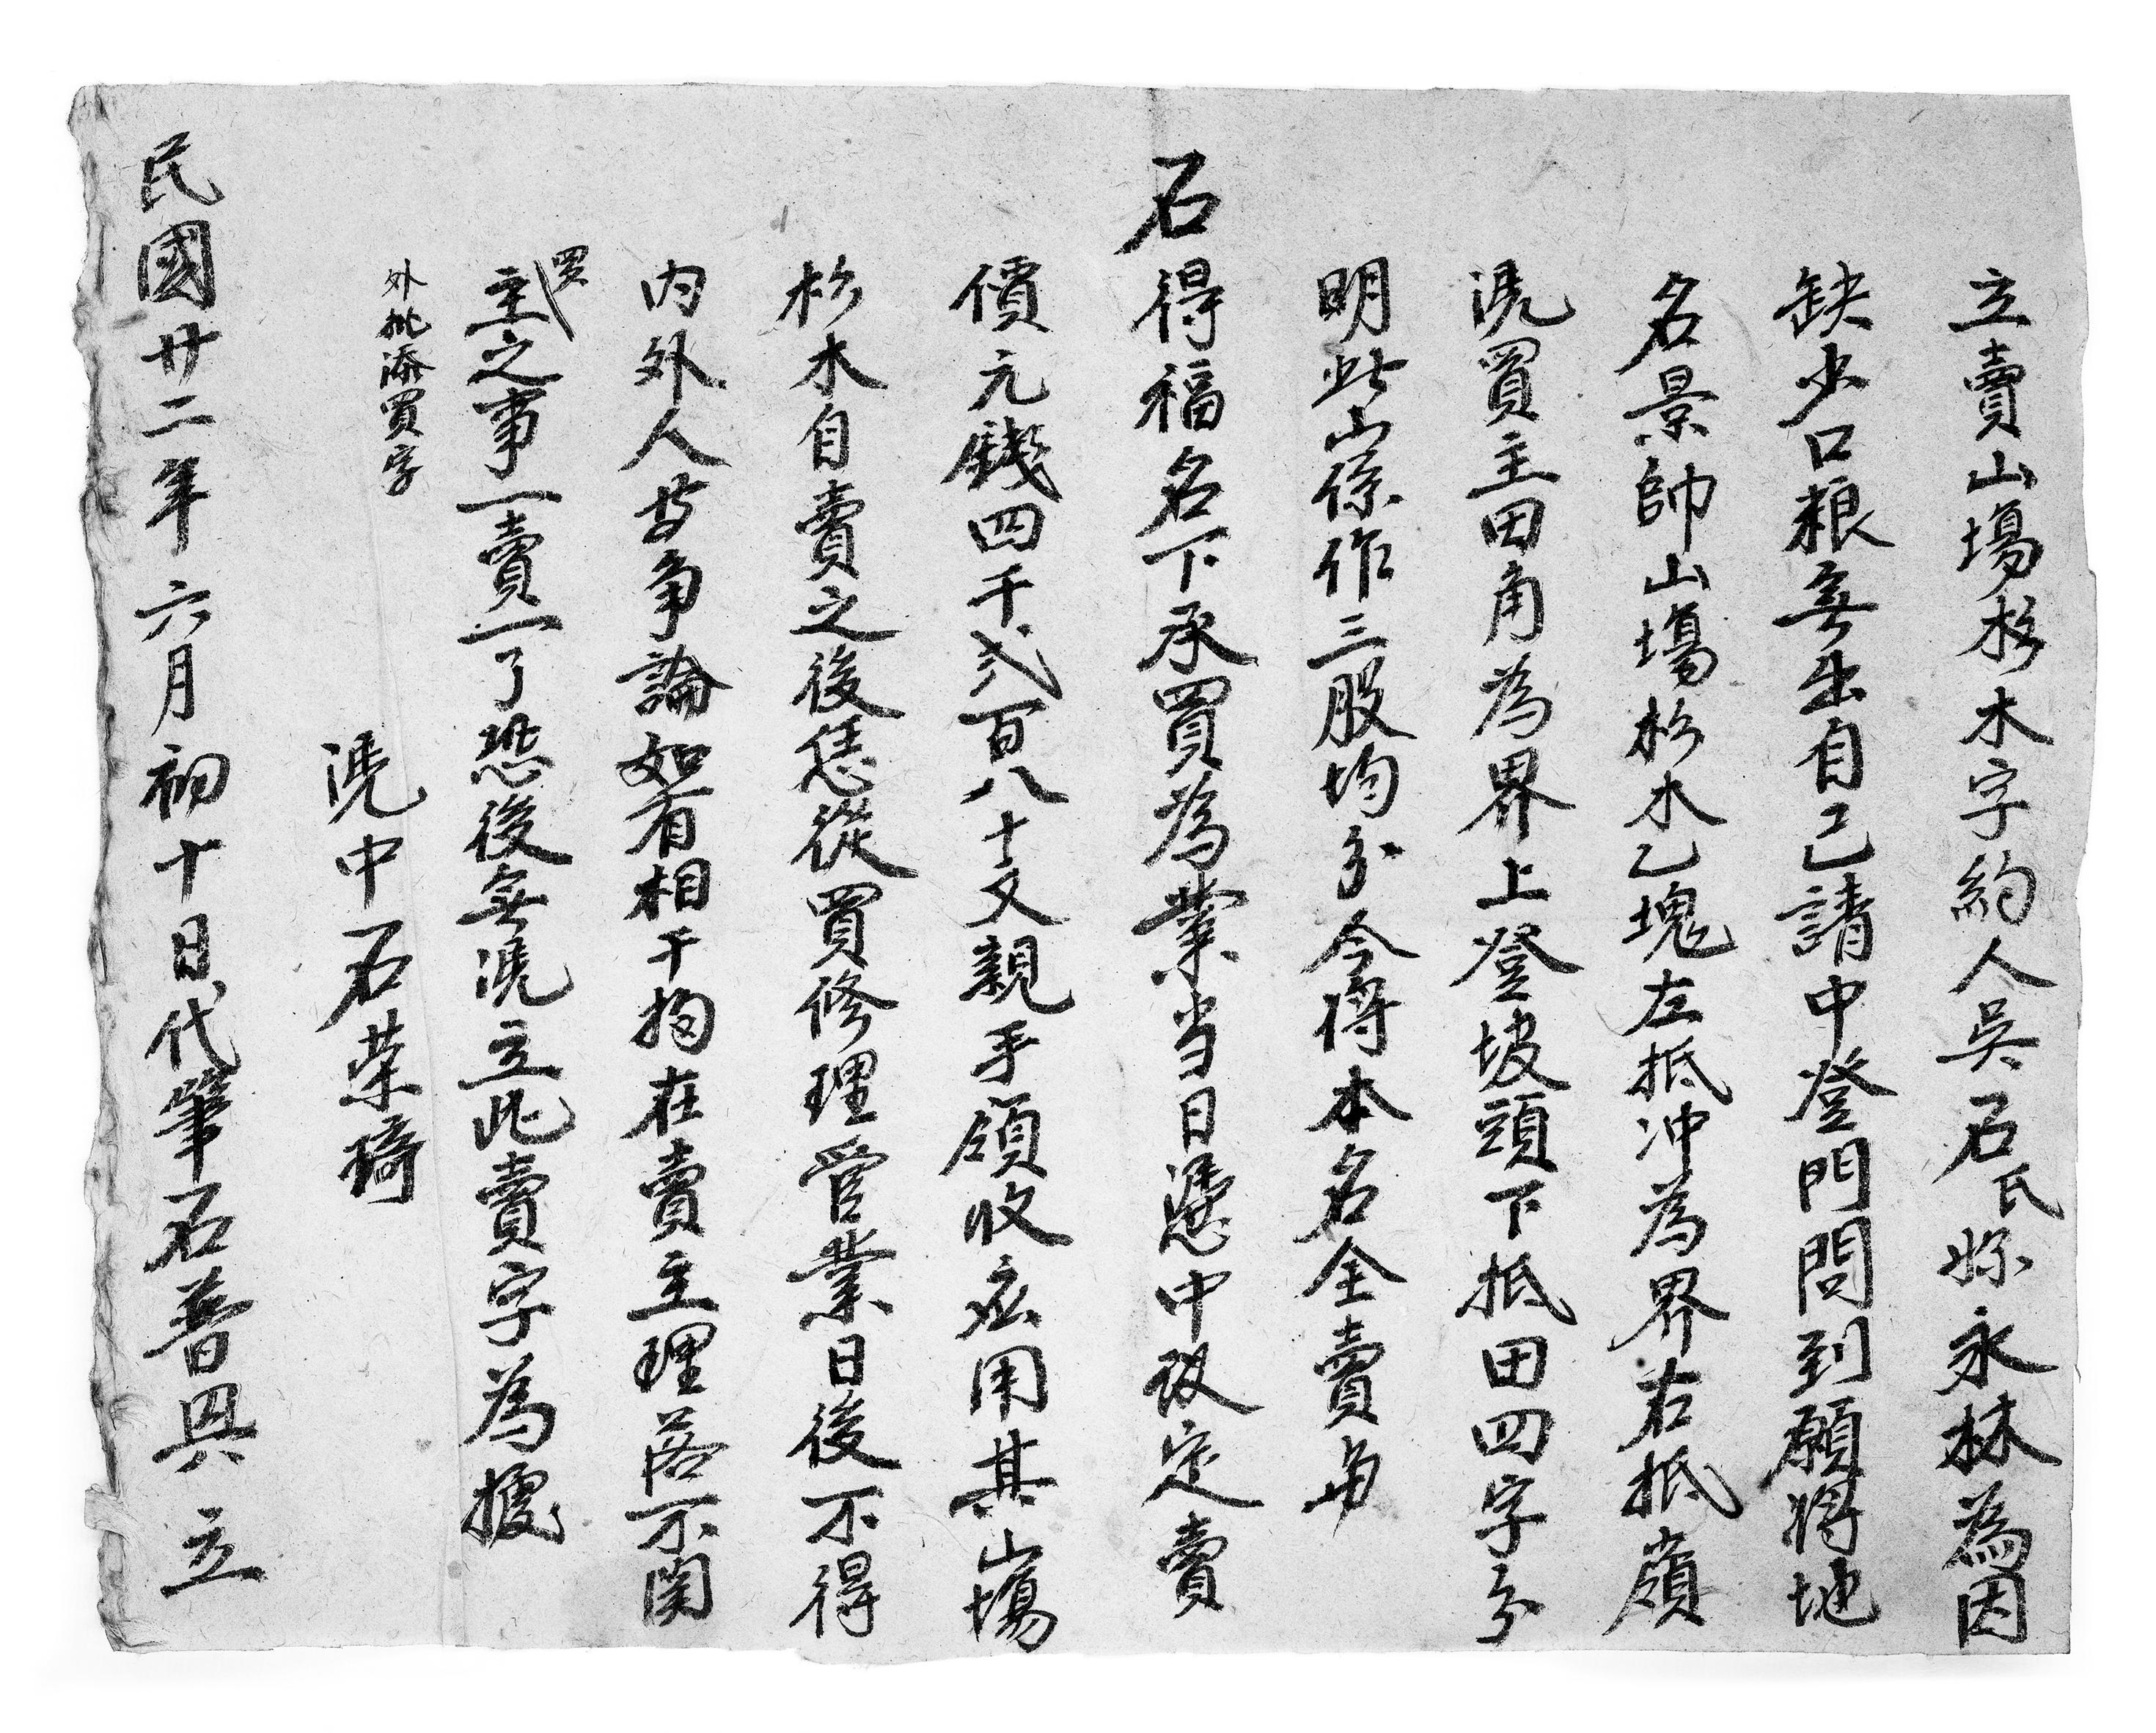 立賣山塲杉木字約人吳石氏妳永林為因
缺少口粮無出自己請中登門問到願將地
名景帥山塲杉木乙塊左抵冲為界右抵嶺
凴買主田角為界上登坡頭下抵田四字分
明此山係作三股均分今將本名全賣与
石得福名下承買為業当日凴中議定賣
價元錢四千弍百八十文親手領收應用其山塲
杉木自賣之後恁從買修理管業日後不得
内外人等争論如有相干拘在賣主理落不関
買主之事一賣一了恐後無凴立此賣字為據
外批添買字
凴中石荣琦
民國廿二年六月初十日代筆石普恩立